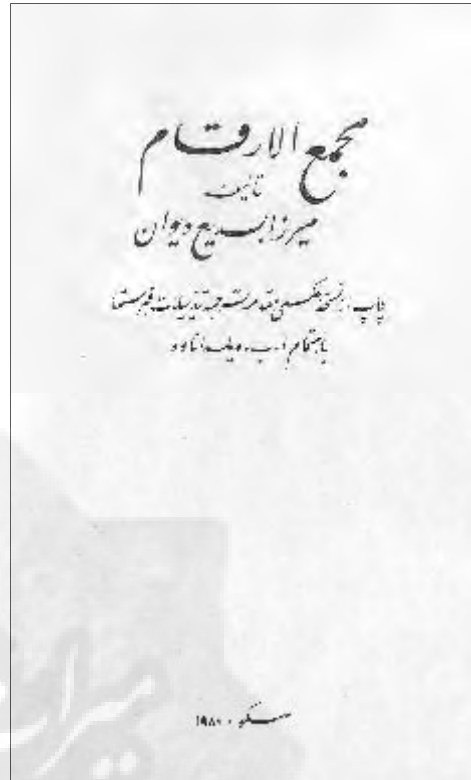 مجمع الارقام
تألیف
میرزا بدیع دیوان
چاپ از نسخهٔ عکسی مقدمه ترجمه تذییلات و فهرستها
باهتمام ا.ب. ویلدانووا
مسکو ۱۹۸۱
میراث